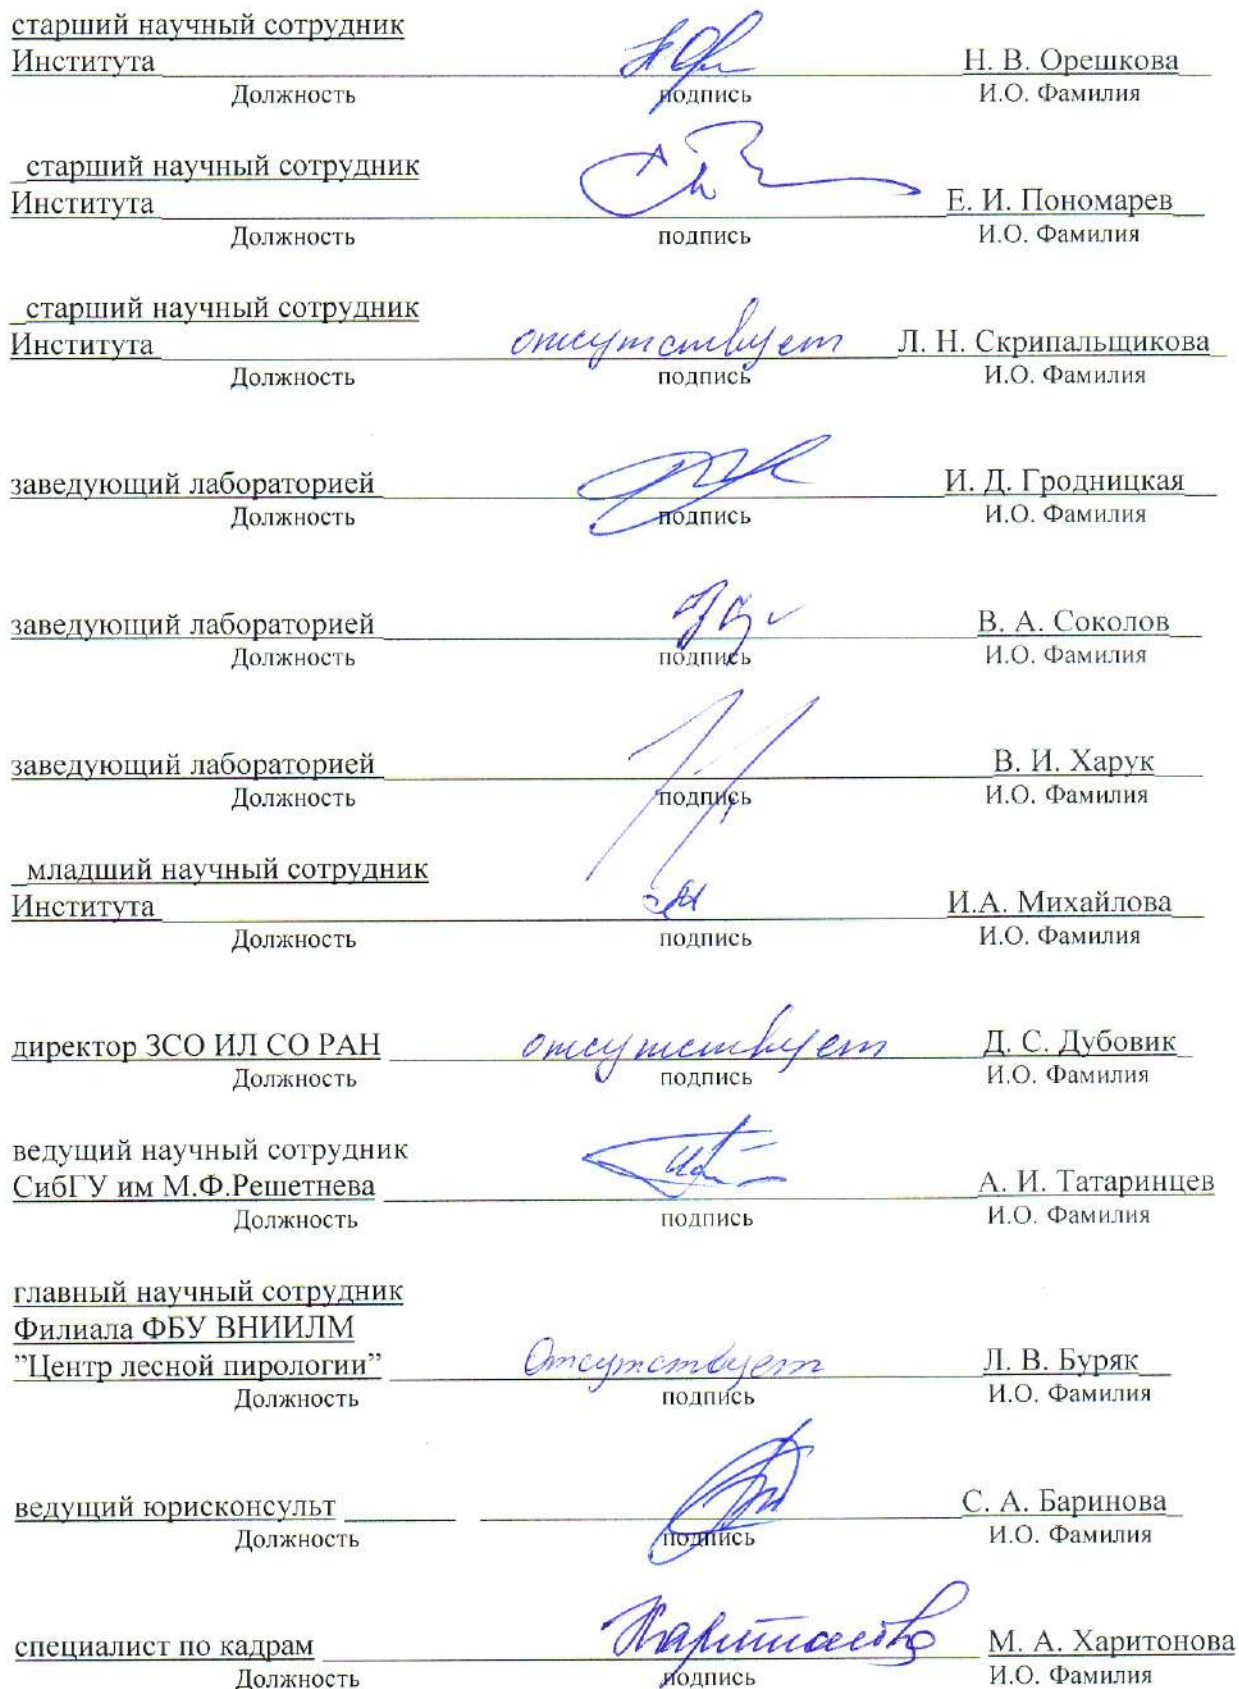 старший научный сотрудник
Института Н. В. Орешкова
Должность подпись И.О. Фамилия
старший научный сотрудник
Института Е. И. Пономарев
Должность подпись И.О. Фамилия
старший научный сотрудник
Института отсутствует Л. Н. Скрипальщикова
Должность подпись И.О. Фамилия
заведующий лабораторией И. Д. Гродницкая
Должность подпись И.О. Фамилия
заведующий лабораторией В. А. Соколов
Должность подпись И.О. Фамилия
заведующий лабораторией В. И. Харук
Должность подпись И.О. Фамилия
младший научный сотрудник
Института И.А. Михайлова
Должность подпись И.О. Фамилия
директор ЗСО ИЛ СО РАН отсутствует Д. С. Дубовик
Должность подпись И.О. Фамилия
ведущий научный сотрудник
СибГУ им М.Ф.Решетнева А. И. Татаринцев
Должность подпись И.О. Фамилия
главный научный сотрудник
Филиала ФБУ ВНИИЛМ
”Центр лесной пирологии” Отсутствует Л. В. Буряк
Должность подпись И.О. Фамилия
ведущий юрисконсульт С. А. Баринова
Должность подпись И.О. Фамилия
специалист по кадрам М. А. Харитонова
Должность подпись И.О. Фамилия